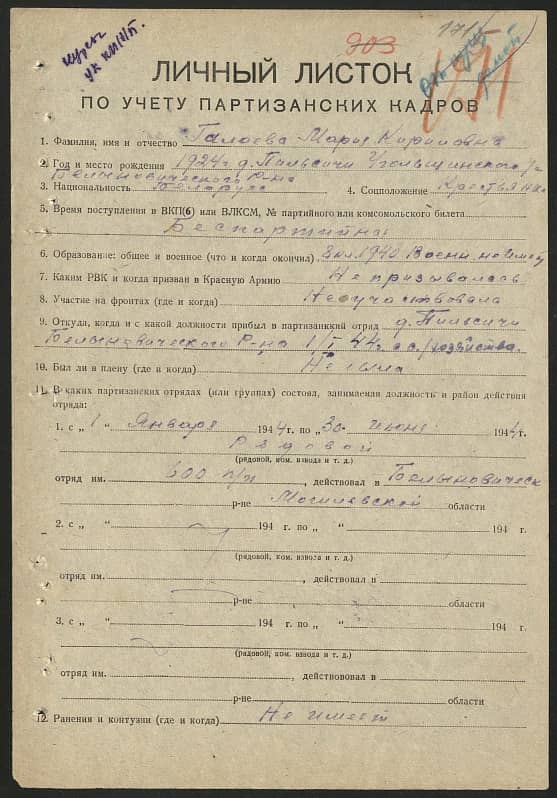 903
ЛИЧНЫЙ ЛИСТОК
ПО УЧЕТУ ПАРТИЗАНСКИХ КАДРОВ
1. Фамилия, имя и отчество Галаева Мария Кириловна
2. Год и место рождения 1924 г д. Пильсичи Угольщинского
Белыновического р-на
3. Национальность Беларусс 4. Соцположение Крестьянка
5. Время поступления в ВКП(б) или ВЛКСМ, № партийного или комсомольского билета
Беспартийная
6. Образование: общее и военное (что и когда окончил) 8 кл. 1940 Воен. не имеет
7. Каким РВК и когда призван в Красную Армию Не призывалась
8. Участие на фронтах (где и когда) Не участвовала
9. Откуда, когда и с какой должности прибыл в партизанккий отряд д. Пильсичи
Белыновического р-на 1/I 44 г. с с./хозяйства.
10. Был ли в плену (где и когда) Не была
11. В каких партизанских отрядах (или группах) состоял, занимаемая должность и район действия
отряда:
1. с „ 1 “ Января 1944 г. по „ 30 “ июня 1944 г.
Рядовой
(рядовой, ком. взвода и т. д.)
отряд им. 600 п/п, действовал в Белыновическ
р-не Могилевской области
2. с „ “ 194 г. по „ “ 194 г.
(рядовой, ком. взвода и т. д.)
отряд им. , действовал в
р-не , области
3. с „ “ 194 г. по „ “ 194 г.
(рядовой, ком. взвода и т. д.)
отряд им. , действовал в
р-не области
12. Ранения и контузии (где и когда) Не имеет